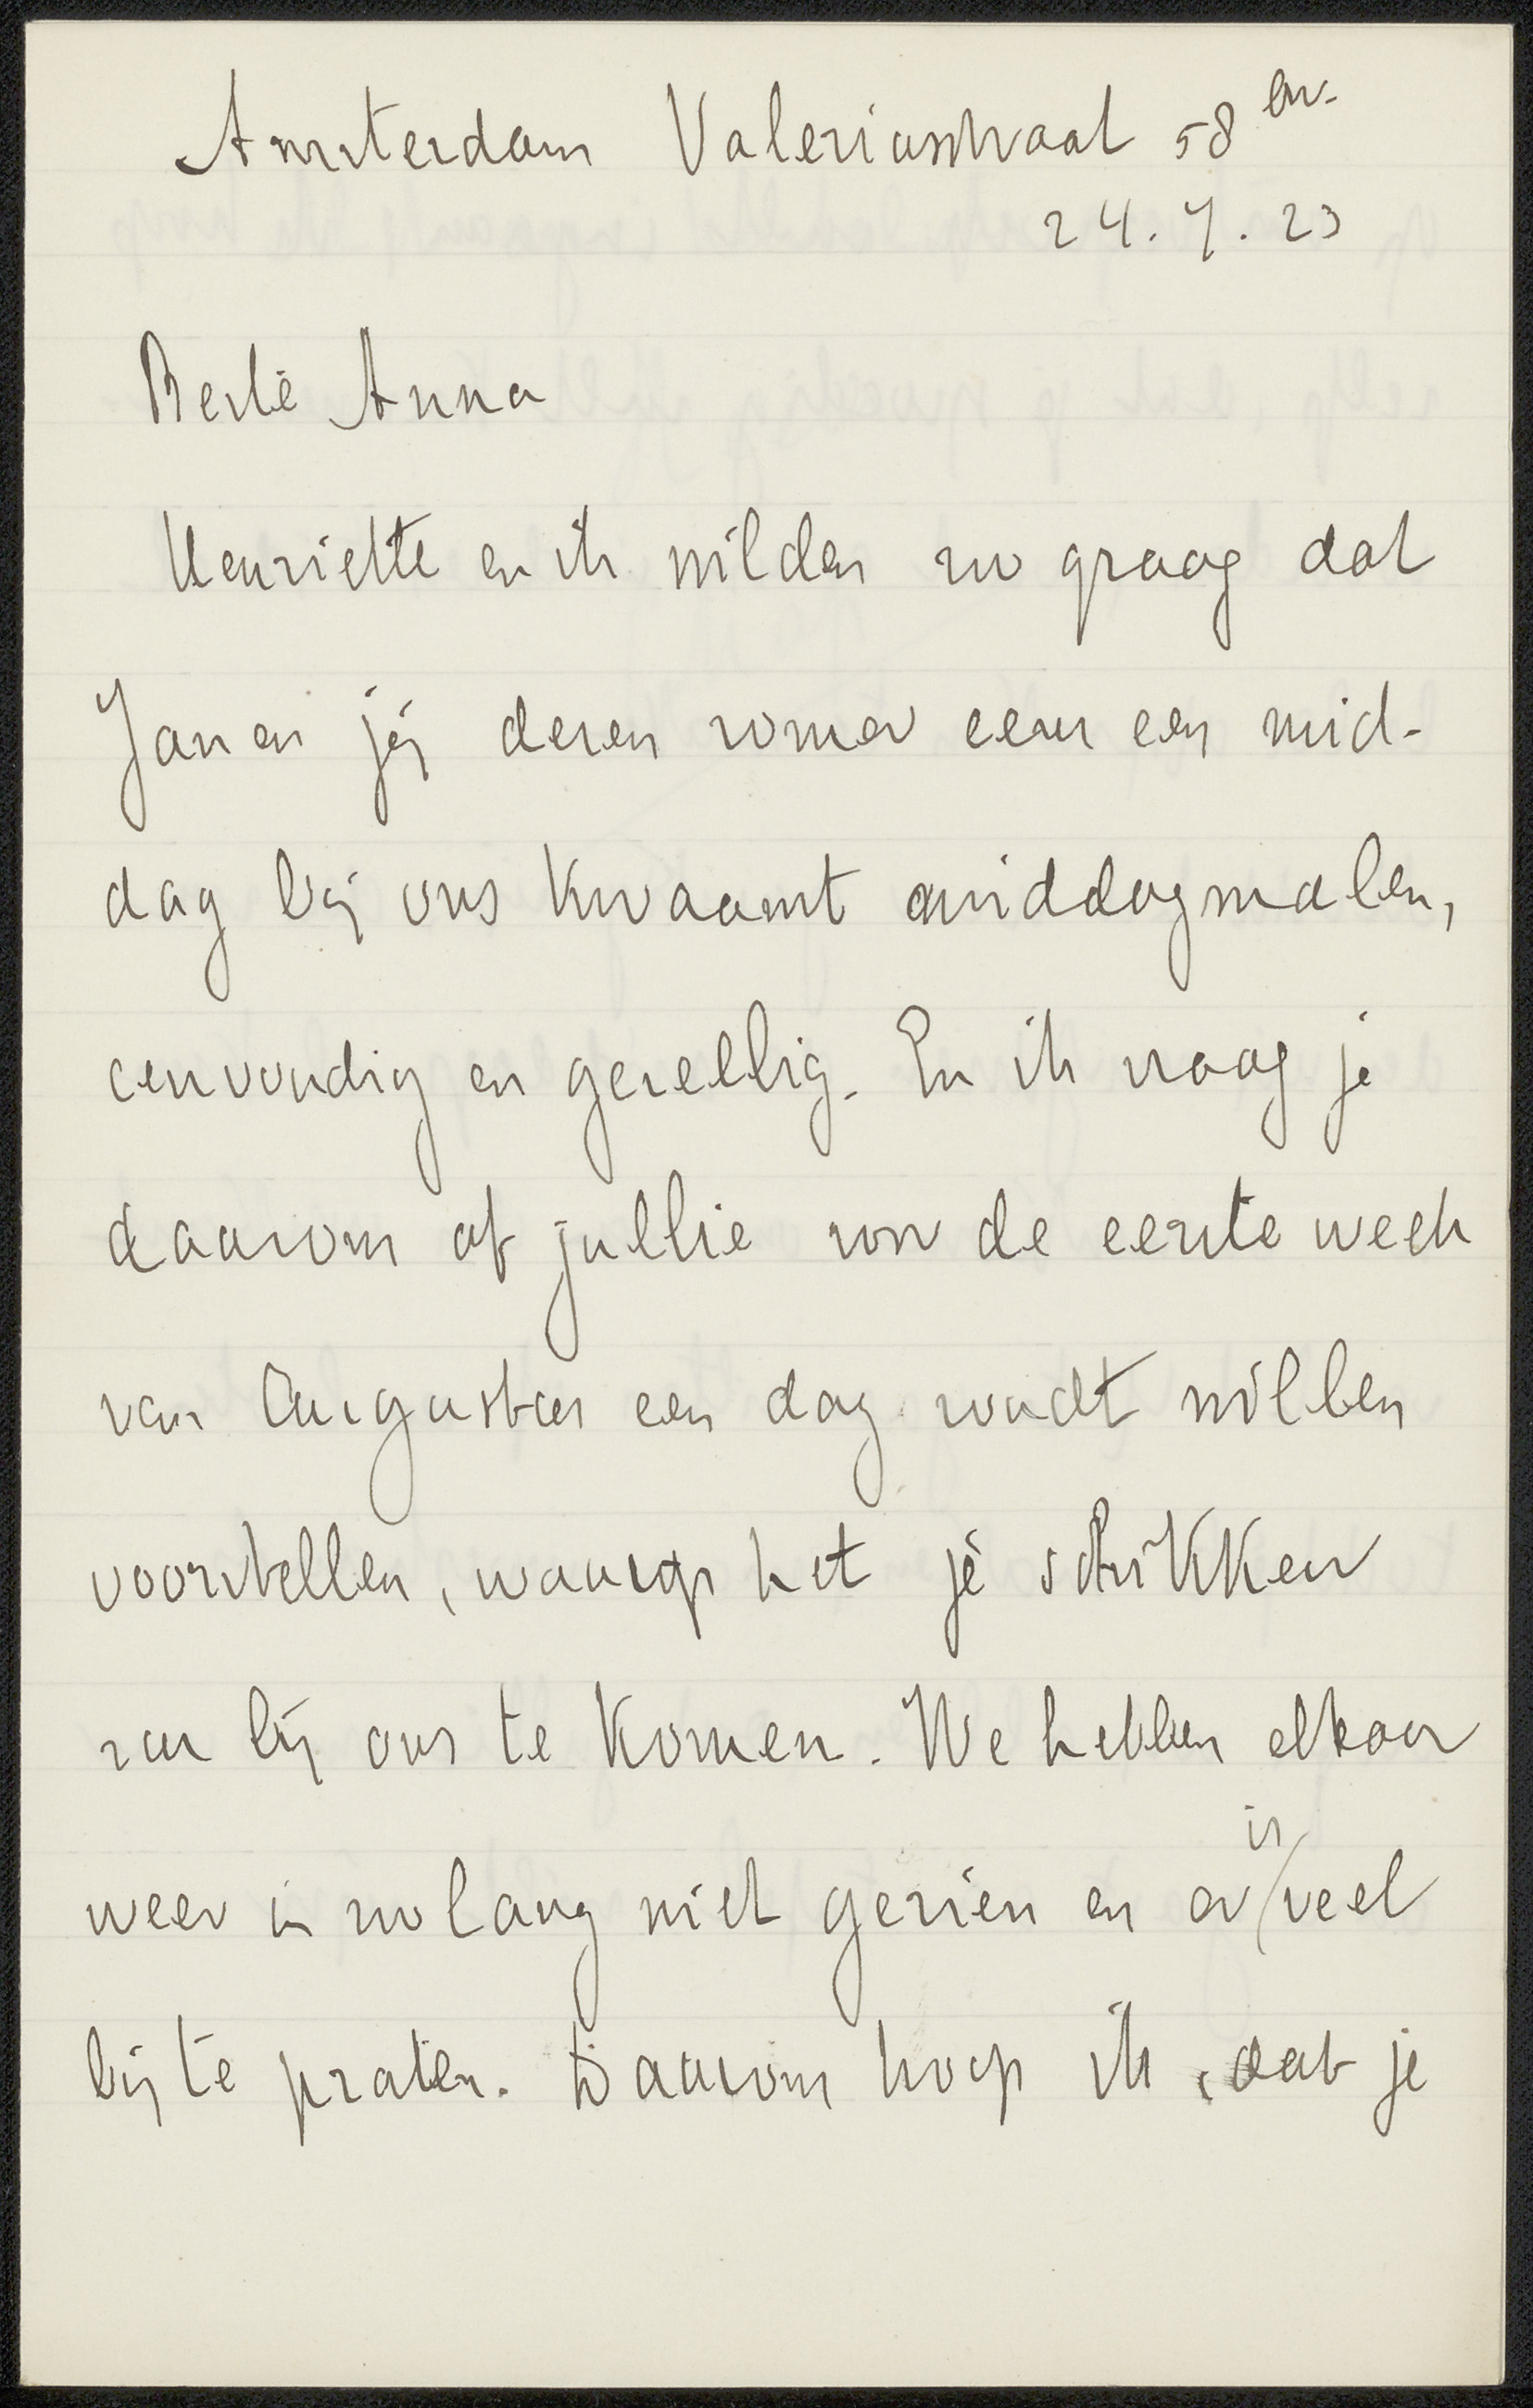 Amsterdam Valeriusstraat 58 hs.
24.7.23
Beste Anna
Henriëtte en ik wilden zoo graag dat
Jan en jij dezen zomer eens een mid-
dag bij ons kwaamt middagmalen,
eenvoudig en gezellig. En ik vraag je
daarom of jullie voor de eerste week
van Augustus een dag zoudt willen
voorstellen, waarop het je schikken
zou bij ons te komen. We hebben elkaar
weer in zoo lang niet gezien en er is veel
bij te praten. Daarom hoop ik, dat je